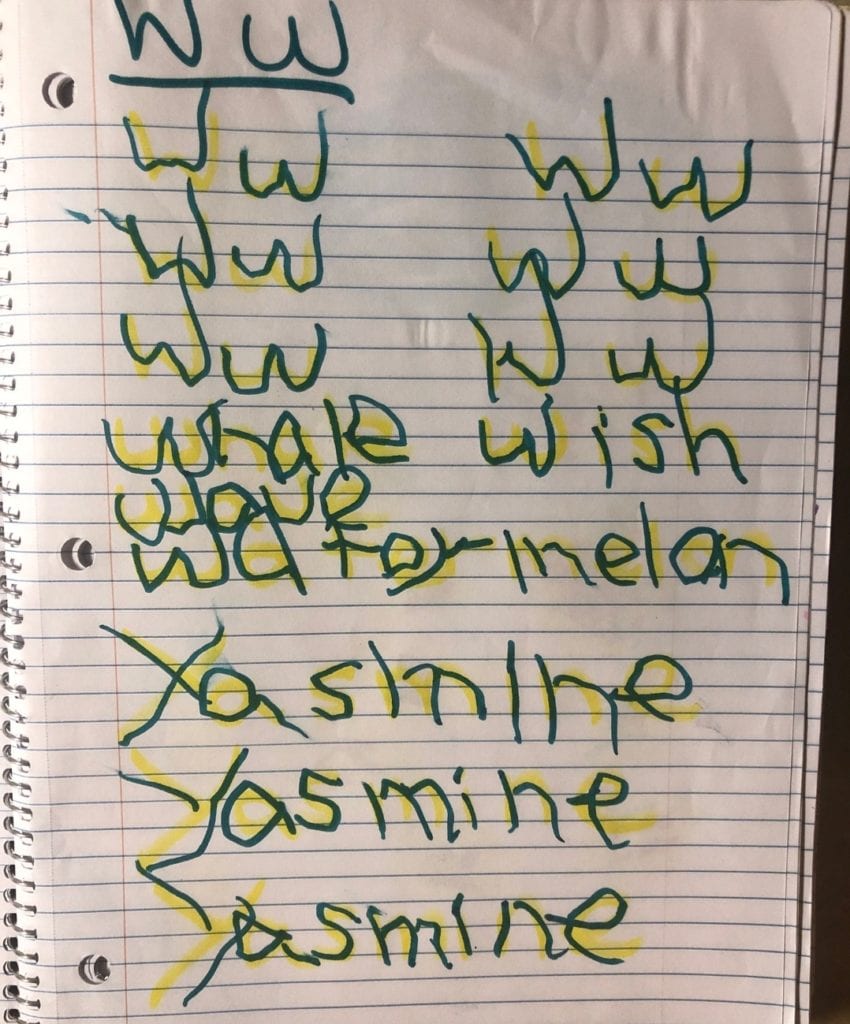 W w
W w W w
W w W w
W w W w
whale wish
wave
watermelon
Yasmine
Yasmine
Yasmine